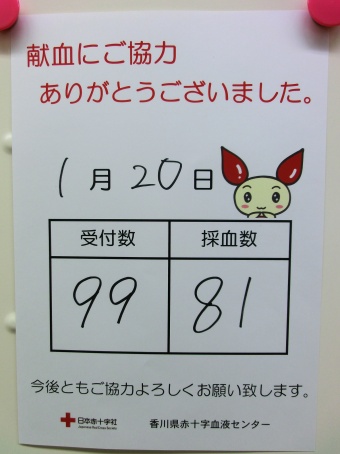 献血にご協力
ありがとうございました。
1月20日
受付数 採血数
99 81
今後ともご協力よろしくお願い致します。
日本赤十字社 香川県赤十字血液センター